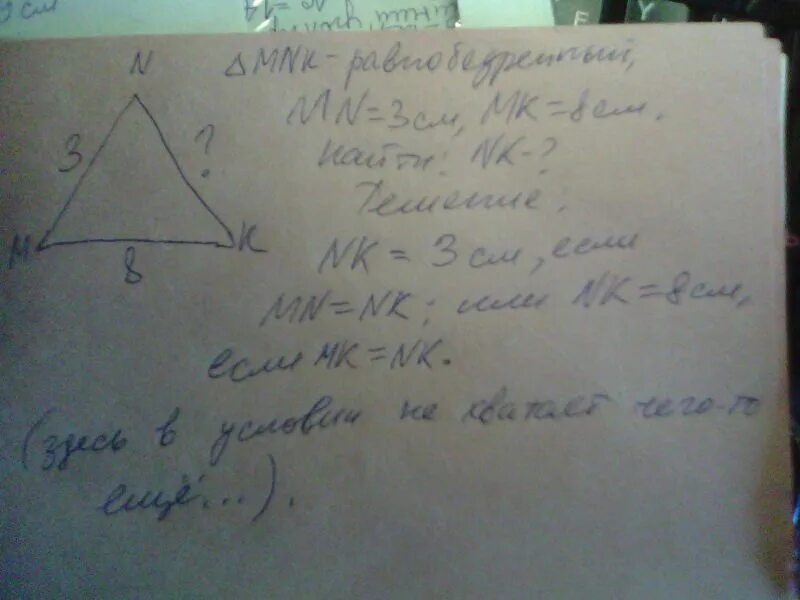 N
3
?
M
K
8
△MNK - равнобедренный,
MN=3см, MK=8см.
Найти: NK-?
Решение:
NK = 3см, если
MN=NK; или NK=8см,
если MK=NK.
(здесь в условии не хватает чего-то
ещё...).